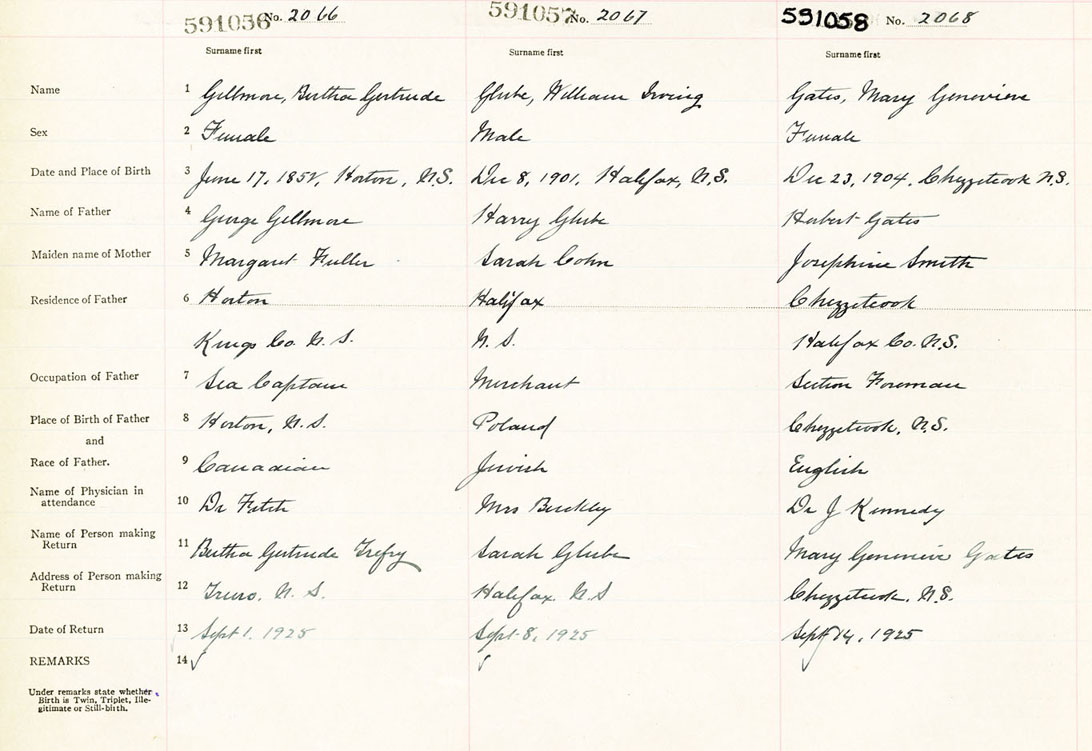 591056 No. 2066 591057 No. 2067 591058 No. 2068
Surname first Surname first Surname first
Name 1 Gillmore, Bertha Gertrude Glube, William Irving Gates, Mary Genevieve
Sex 2 Female Male Female
Date and Place of Birth 3 June 17, 1858, Horton, N.S. Dec 8, 1901, Halifax, N.S. Dec 23, 1904, Chezzetcook N.S.
Name of Father 4 George Gillmore Harry Glube Hubert Gates
Maiden name of Mother 5 Margaret Fuller Sarah Cohn Josephine Smith
Residence of Father 6 Horton Halifax Chezzetcook
Kings Co. N. S. N. S. Halifax Co. N.S.
Occupation of Father 7 Sea Captain Merchant Section Foreman
Place of Birth of Father 8 Horton, N.S. Poland Chezzetcook, N.S.
and
Race of Father. 9 Canadian Jewish English
Name of Physician in
attendance 10 Dr Fitch Mrs Buckley Dr J Kennedy
Name of Person making
Return 11 Bertha Gertrude Trefry Sarah Glube Mary Genevieve Gates
Address of Person making
Return 12 Truro, N. S. Halifax, N.S Chezzetcook, N.S.
Date of Return 13 Sept 1, 1925 Sept 8, 1925 Sept 14, 1925
REMARKS 14 ✓
Under remarks state whether
Birth is Twin, Triplet, Ille-
gitimate or Still-birth.